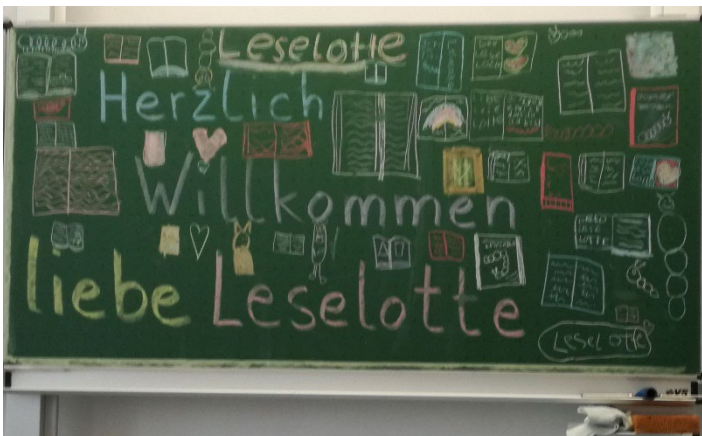 Leselotte
Herzlich
Willkommen
liebe Leselotte
Leselotte